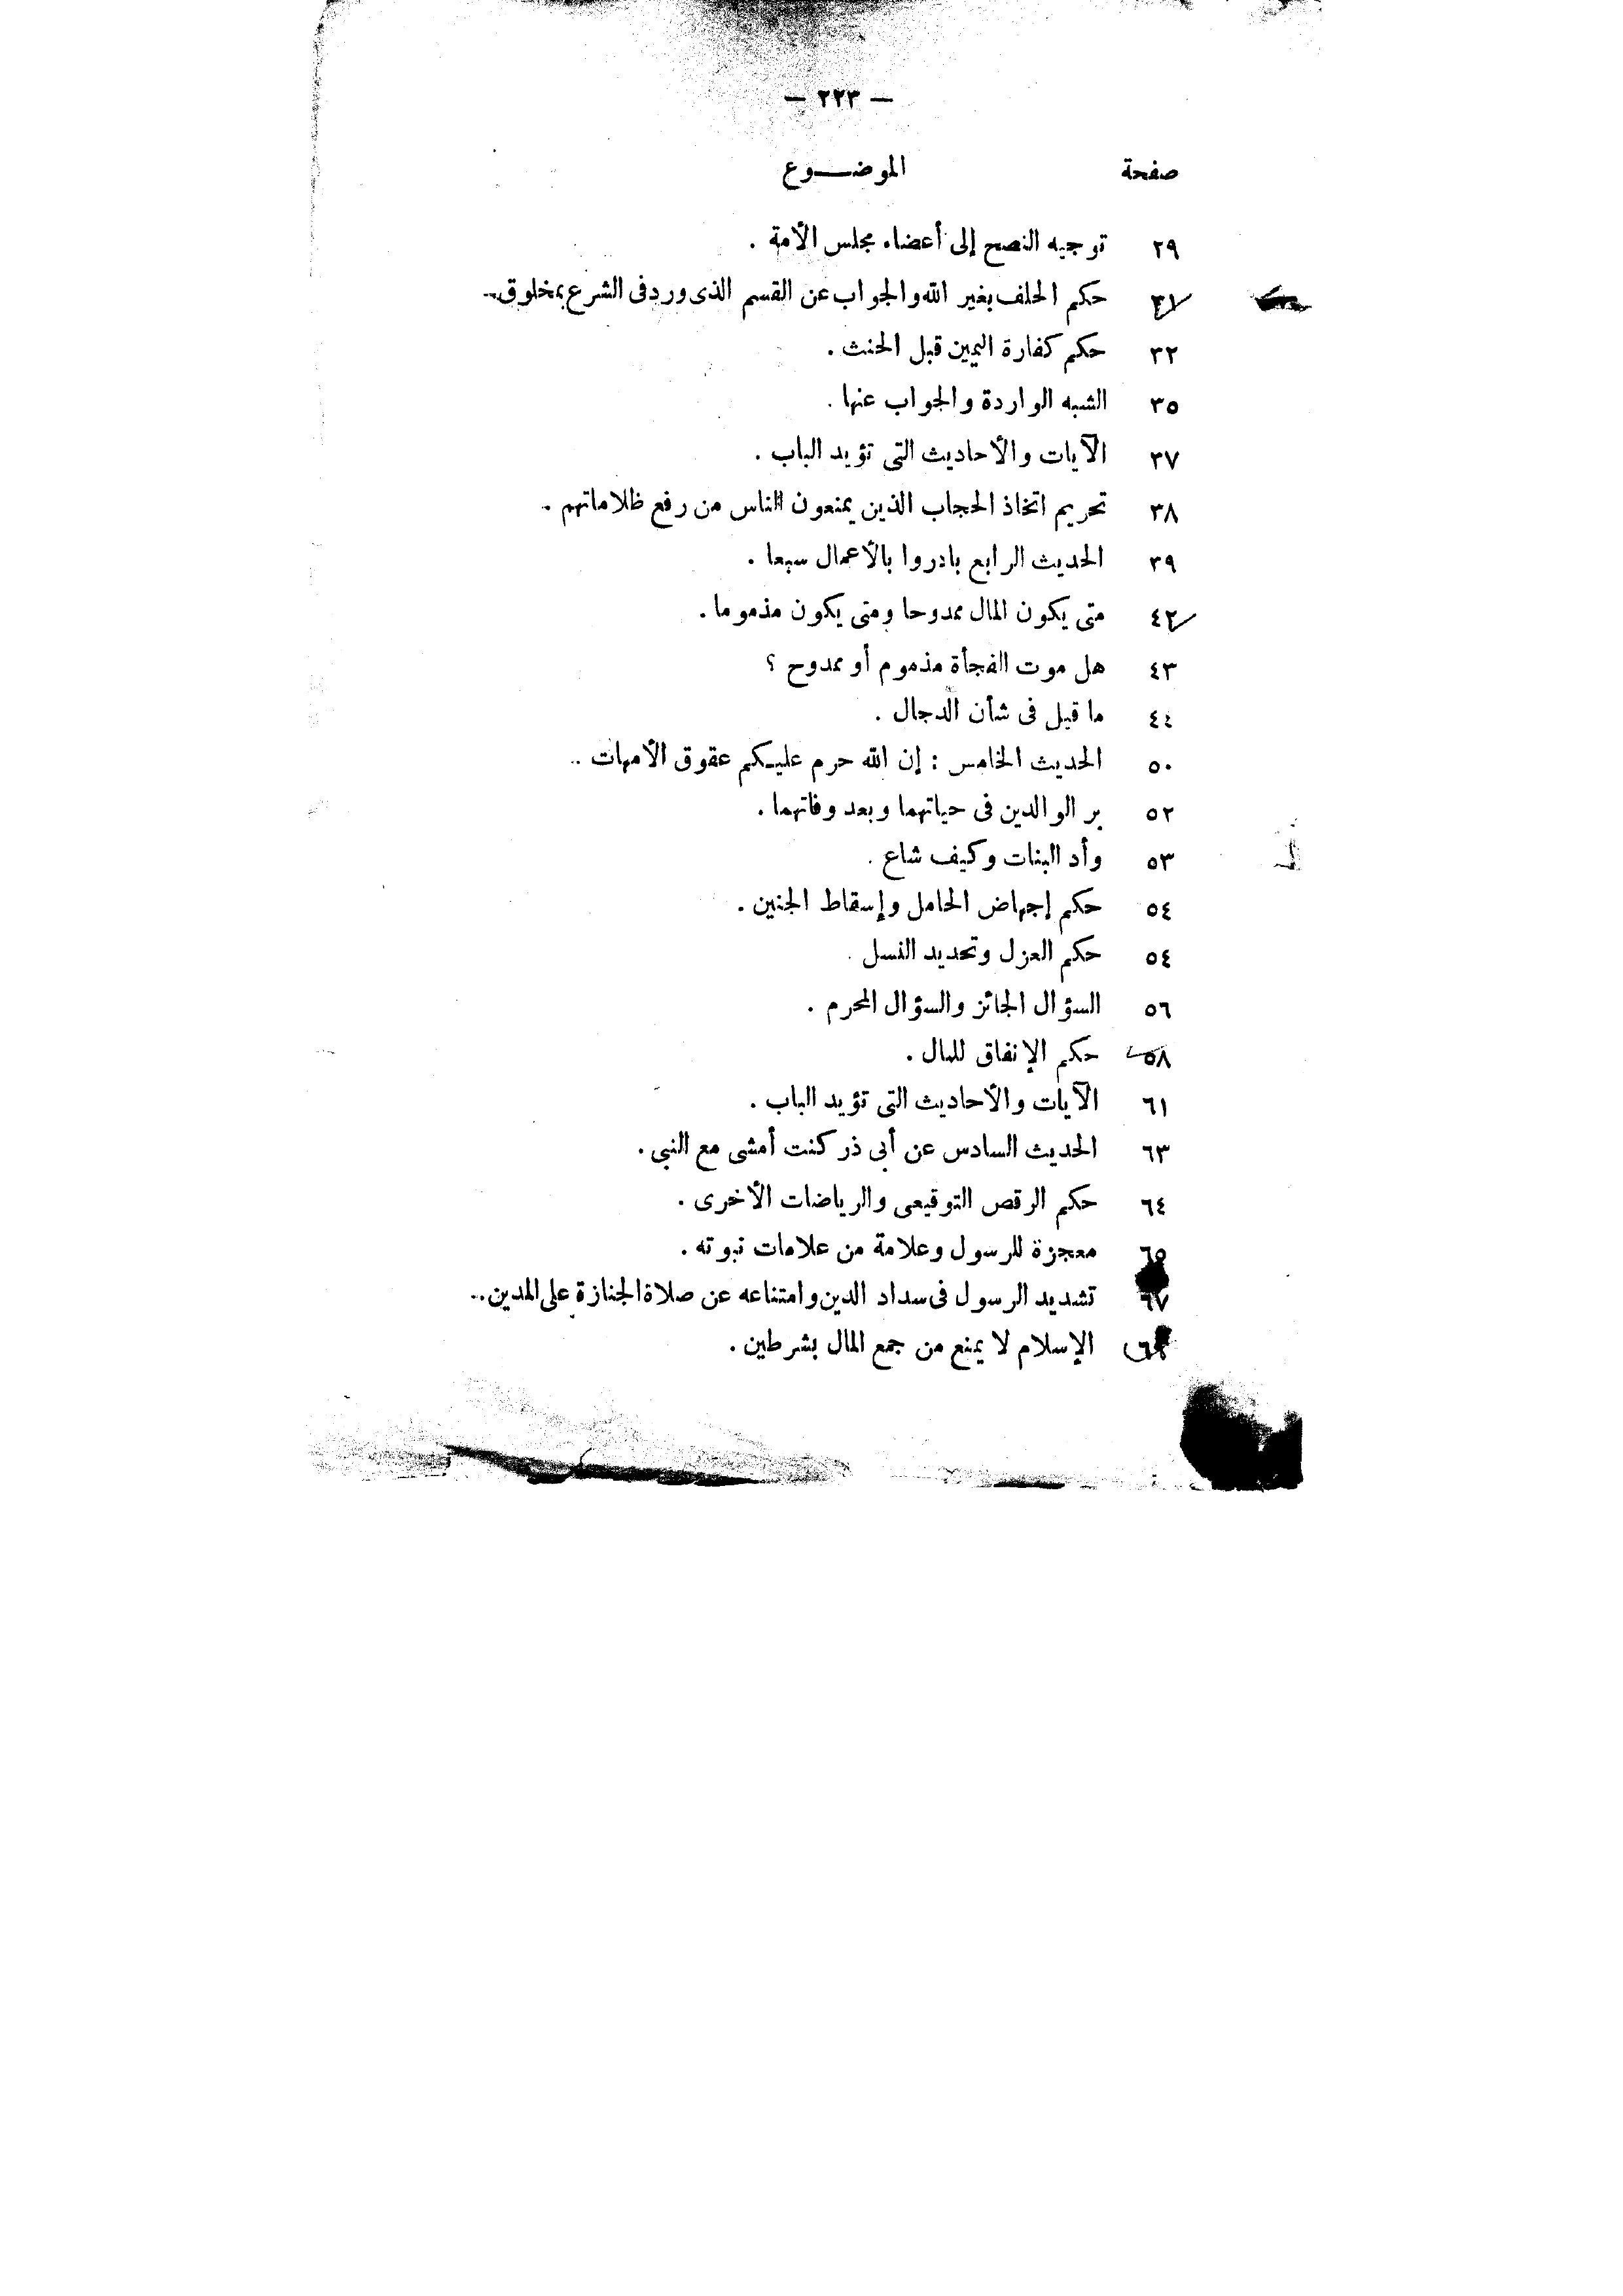 — ٢٢٣ —
صفحة الموضـــوع
٢٩ توجيه النصح إلى أعضاء مجلس الأمة .
٣١ حكم الحلف بغير الله والجواب عن القسم الذى ورد فى الشرع بمخلوق..
٣٢ حكم كفارة اليمين قبل الحنث .
٣٥ الشبه الواردة والجواب عنها .
٣٧ الآيات والأحاديث التى تؤيد الباب .
٣٨ تحريم اتخاذ الحجاب الذين يمنعون الناس من رفع ظلاماتهم .
٣٩ الحديث الرابع بادروا بالأعمال سبعا .
٤٢ متى يكون المال ممدوحا ومتى يكون مذموما .
٤٣ هل موت الفجأة مذموم أو ممدوح ؟
٤٤ ما قيل فى شأن الدجال .
٥٠ الحديث الخامس : إن الله حرم عليـكم عقوق الأمهات ..
٥٢ بر الوالدين فى حياتهما وبعد وفاتهما .
٥٣ وأد البنات وكيف شاع .
٥٤ حكم إجهاض الحامل وإسقاط الجنين .
٥٤ حكم العزل وتحديد النسل .
٥٦ السؤال الجائز والسؤال المحرم .
٥٨ حكم الإنفاق للمال .
٦١ الآيات والأحاديث التى تؤيد الباب .
٦٣ الحديث السادس عن أبى ذر كنت أمشى مع النبى .
٦٤ حكم الرقص التوقيعى والرياضات الأخرى .
٦٥ معجزة للرسول وعلامة من علامات نبوته .
٦٧ تشديد الرسول فى سداد الدين وامتناعه عن صلاة الجنازة على المدين..
الإسلام لا يمنع من جمع المال بشرطين .